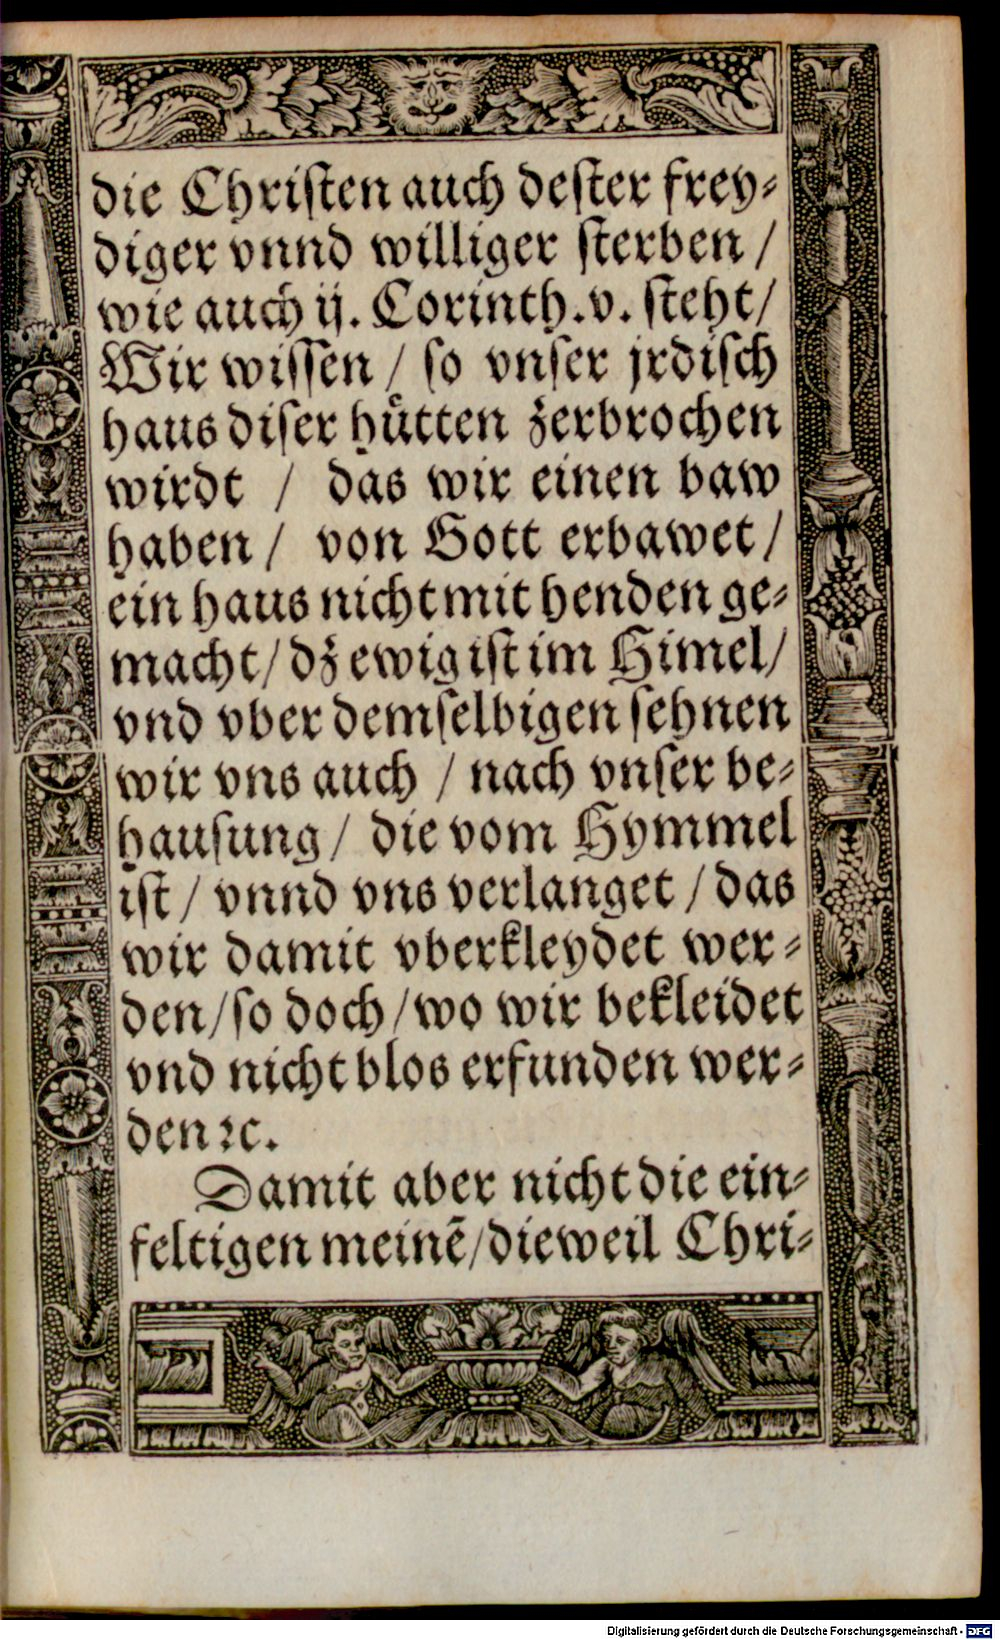 die Chriſten auch deſter frey⸗
diger vnnd williger ſterben /
wie auch ij. Corinth. v. ſteht/
Wir wiſſen / ſo vnſer jrdiſch
haus diſer huͤtten zerbrochen
wirdt / das wir einen baw
haben / von Gott erbawet /
ein haus nicht mit henden ge⸗
macht / dz ewig iſt im Himel /
vnd vber demſelbigen ſehnen
wir vns auch / nach vnſer be⸗
hauſung / die vom Hymmel
iſt / vnnd vns verlanget / das
wir damit vberkleydet wer⸗
den / ſo doch / wo wir bekleidet
vnd nicht blos erfunden wer⸗
den ꝛc.
Damit aber nicht die ein⸗
feltigen meinē / dieweil Chri⸗
Digitalisierung gefördert durch die Deutsche Forschungsgemeinschaft - DFG